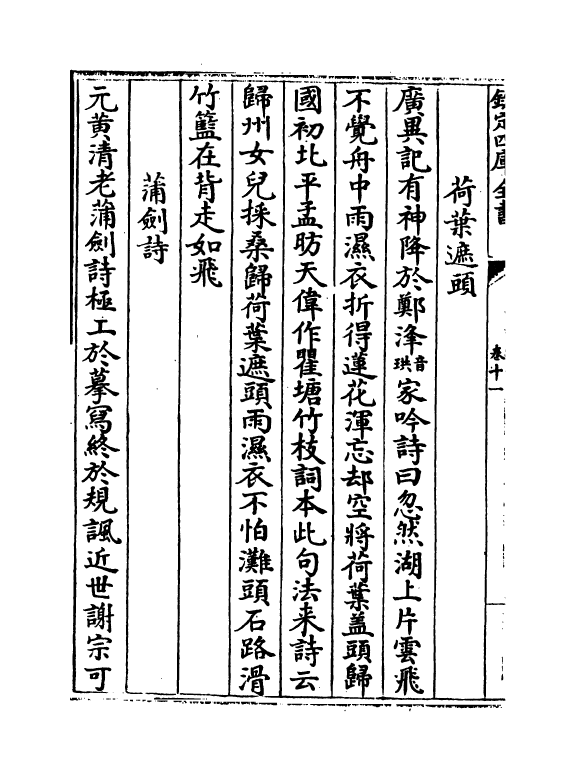 欽定四庫全書
卷十一
荷葉遮頭
廣異記有神降於鄭浲音珙家吟詩曰忽然湖上片雲飛
不覺舟中雨濕衣折得蓮花渾忘却空將荷葉盖頭歸
國初北平孟昉天偉作瞿塘竹枝詞本此句法来詩云
歸州女兒採桑歸荷葉遮頭雨濕衣不怕灘頭石路滑
竹籃在背走如飛
蒲劍詩
元黄清老蒲劍詩極工於摹寫終於規諷近世謝宗可